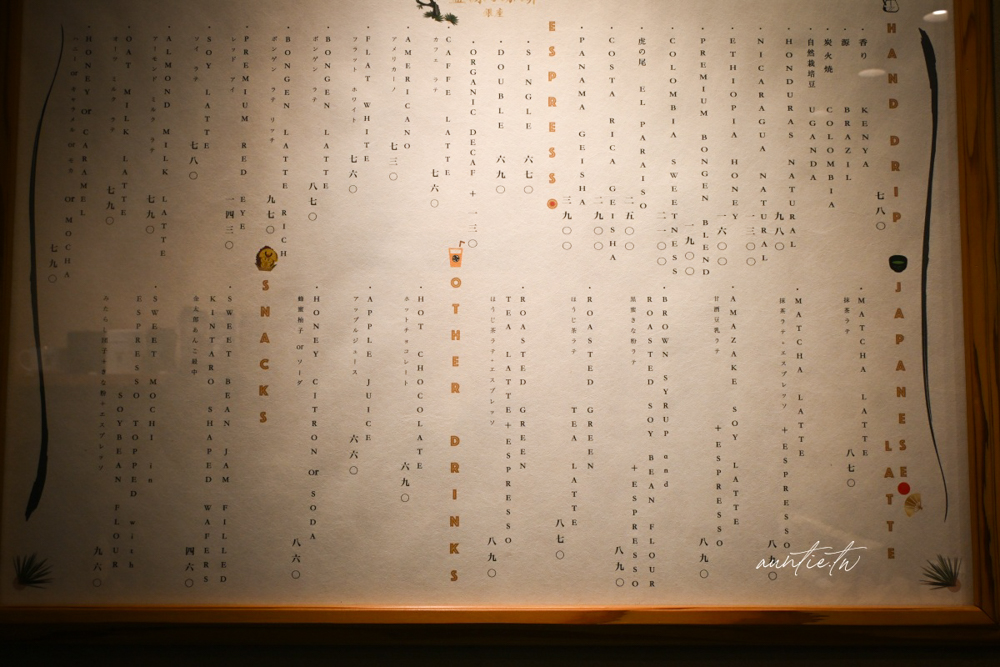 銀座
HAND DRIP
香り KENYA
源 BRAZIL
炭火焼 COLOMBIA
自然栽培豆 UGANDA
七八〇
・HONDURAS NATURAL 九八〇
・NICARAGUA NATURAL 一三〇〇
・ETHIOPIA HONEY 一六〇〇
・PREMIUM BONGEN BLEND 一九〇〇
・COLOMBIA SWEETNESS 二一〇〇
虎の尾 EL PARAISO 二五〇〇
・COSTA RICA GEISHA 二九〇〇
・PANAMA GEISHA 三九〇〇
ESPRESSO
・SINGLE 六七〇
・DOUBLE 六九〇
・ORGANIC DECAF + 一三〇
・CAFFE LATTE 七六〇
カフェ ラテ
・AMERICANO 七三〇
アメリカーノ
・FLAT WHITE 七六〇
フラット ホワイト
・BONGEN LATTE 八七〇
ボンゲン ラテ
・BONGEN LATTE RICH 九七〇
ボンゲン ラテ リッチ
・PREMIUM RED EYE 一四三〇
レッド アイ
・SOY LATTE 七八〇
ソイ ラテ
・ALMOND MILK LATTE 七九〇
アーモンド ミルク ラテ
・OAT MILK LATTE 七九〇
オーツ ミルク ラテ
・HONEY or CARAMEL
or MOCHA 七九〇
JAPANESE LATTE
・MATCHA LATTE 八七〇
抹茶ラテ
・MATCHA LATTE + ESPRESSO 八九〇
抹茶ラテ+エスプレッソ
・AMAZAKE SOY LATTE + ESPRESSO 八九〇
甘酒豆乳ラテ
・BROWN SYRUP and
ROASTED SOY BEAN FLOUR + ESPRESSO 八九〇
黒蜜きな粉ラテ
・ROASTED GREEN TEA LATTE 八七〇
ほうじ茶ラテ
・ROASTED GREEN
TEA LATTE + ESPRESSO 八九〇
ほうじ茶ラテ+エスプレッソ
OTHER DRINKS
・HOT CHOCOLATE 六九〇
ホットチョコレート
・APPLE JUICE 六六〇
アップルジュース
・HONEY CITRON or SODA 八六〇
蜂蜜柚子 or ソーダ
SNACKS
・SWEET BEAN JAM FILLED
KINTARO SHAPED WAFERS 四六〇
金太郎あんこ最中
・SWEET MOCHI in
ESPRESSO TOPPED with
SOYBEAN FLOUR 九六〇
auntie.tw